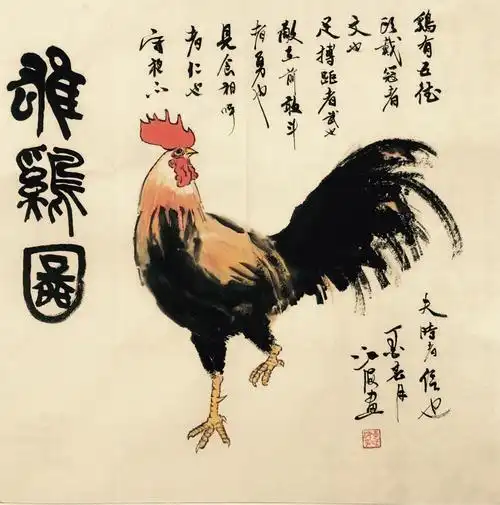 鷄有五德
頭戴冠者
文也
足搏距者武也
敵在前敢斗
者勇也
見食相呼
者仁也
守夜不
失時者信也
丁酉春月
画
雄鷄圖